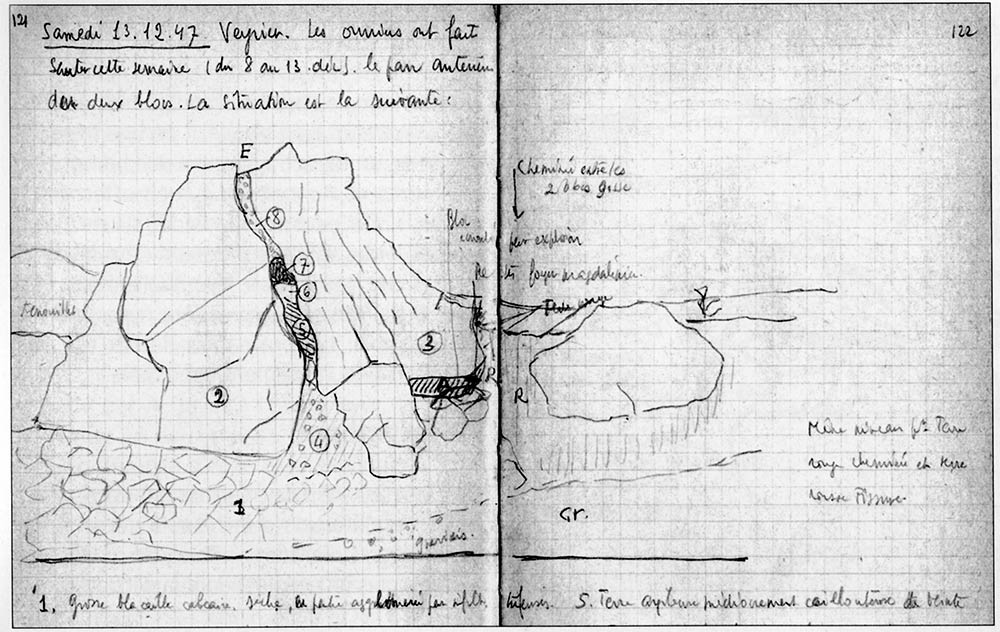 121
122
Samedi 13.12.47 Veyrier. Les ouvriers ont fait
Sauter cette semaine (du 8 au 13 déc). le pan antérieur
des deux blocs. La situation est la suivante:
E
Cheminée entre les
2 blocs
Bloc
pour exploser
foyer magdalénien
8
7
6
5
3
2
R
R
4
1
Gr.
graviers.
Même niveau pr Terre
rouge cheminée et terre
1. Grosse blocaille calcaire, sèche, en partie agglomérée par
5. Terre argileuse médiocrement caillouteuse de teinte